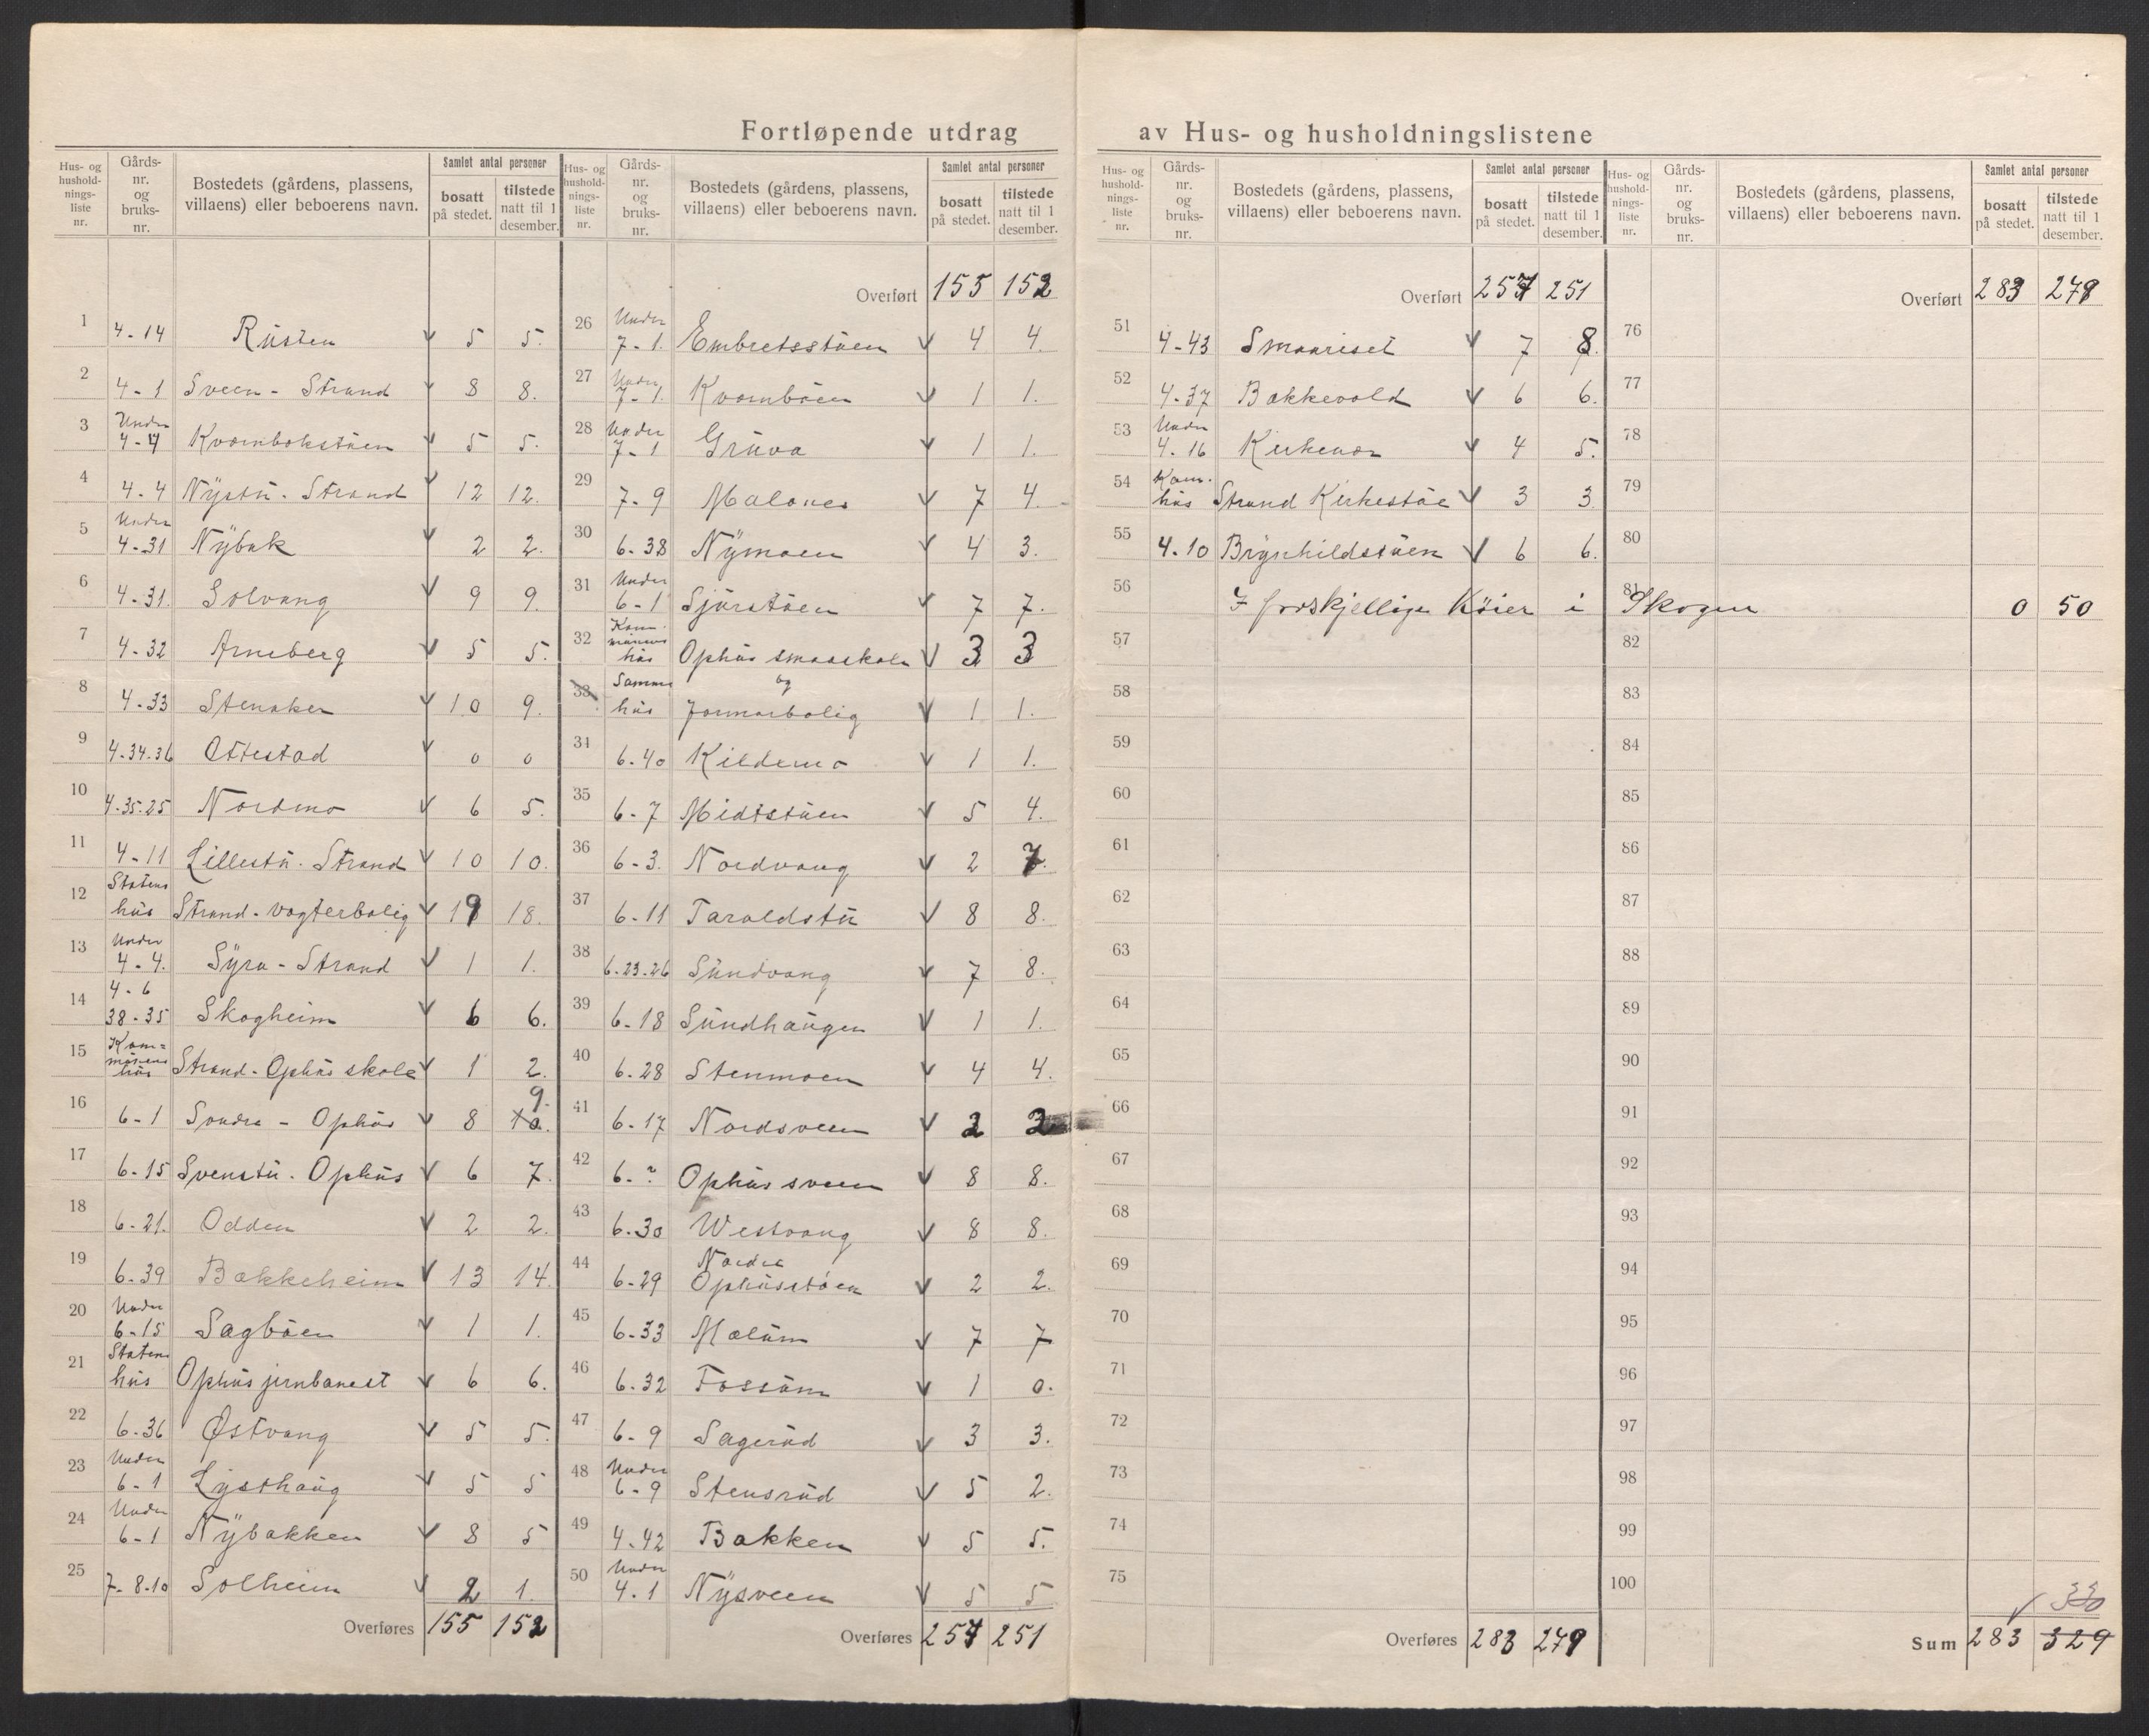 Fortløpende utdrag av Hus- og husholdningslistene
Hus- og husholdnings-liste nr. Gårds-nr. og bruks-nr. Bostedets (gårdens, plassens, villaens) eller beboerens navn. Samlet antal personer bosatt på stedet. tilstede natt til 1 desember.
1 4-14 Rüsten 5 5.
2 4-1 Sveen - Strand 8 8.
3 Under 4-4 Kvombekstüen 5 5.
4 4-4 Nÿstü. Strand 12 12.
5 Under 4-31 Nÿbak 2 2.
6 4-31. Solvang 9 9.
7 4-32 Arneberg 5 5.
8 4-33 Stenaker 10 9.
9 4-34.36 Ottestad 0 0
10 4-35.25 Nordmo 6 5.
11 4-11 Lillestü. Strand 10 10.
12 Statens hüs Strand-vogterbolig 19 18.
13 Under 4-4. Sÿra - Strand 1 1.
14 4-6 38-35 Skogheim 6 6.
15 Kom=münens hüs Strand-Ophüs skole 1 2.
16 6-1 Søndre - Ophüs 8 9.
17 6-15 Svenstü. Ophüs 6 7.
18 6-21. Odden 2 2.
19 6.39 Bakkeheim 13 14.
20 Under 6-15 Sagbüen 1 1.
21 Statens hüs Ophüs jernbanest 6 6.
22 6.36 Østvang 5 5.
23 Under 6-1 Lÿsthaüg 5 5
24 Under 6-1 Nÿbakken 8 5
25 7-8.10 Solheim 2 1.
Overføres 155 152
Hus- og husholdnings-liste nr. Gårds-nr. og bruks-nr. Bostedets (gårdens, plassens, villaens) eller beboerens navn. Samlet antal personer bosatt på stedet. tilstede natt til 1 desember.
Overført 155 152
26 Under 7-1. Embretsstüen 4 4.
27 Under 7-1. Kvombüen 1 1.
28 Under 7-1 Grüva 1 1.
29 7-9 Malones 7 4.
30 6.38 Nÿmoen 4 3.
31 Under 6-1 Sjürstüen 7 7.
32 Kommünens hüs Ophüs smaaskole 3 3
og
33 Samme hüs formorbolig 1 1.
34 6.40 Kildemo 1 1.
35 6-7 Midtstüen 5 4.
36 6-3. Nordvang 2 7.
37 6-11 Taraldstü 8 8.
38 6.23.26 Sündvang 7 8.
39 6-18 Sündhaügen 1 1.
40 6.28 Stenmoen 4 4.
41 6.17 Nordsveen 2 2
42 6.? Ophüs sveen 8 8.
43 6.30 Westvang 8 8.
44 6-29 Nordre Ophüsstüen 2 2.
45 6.33 Mælüm 7 7
46 6.32 Fossüm 1 0.
47 6-9 Sagerüd 3 3.
48 Under 6-9 Stensrüd 5 2.
49 4.42 Bakken 5 5.
50 Under 4.1 Nÿsveen 5 5
Overføres 257 251
Hus- og husholdnings-liste nr. Gårds-nr. og bruks-nr. Bostedets (gårdens, plassens, villaens) eller beboerens navn. Samlet antal personer bosatt på stedet. tilstede natt til 1 desember.
Overført 257 251
51 4-43 Smaariset 7 8.
52 4.37 Bakkevold 6 6.
53 Under 4.16 Kirkemon 4 5.
54 Kom. hüs Strand Kirkestüe 3 3.
55 4.10 Brÿnhildstüen 6 6.
56 I forskjellige Köier i Skogen 0 50
57
58
59
60
61
62
63
64
65
66
67
68
69
70
71
72
73
74
75
Overføres 283 279
Hus- og husholdnings-liste nr. Gårds-nr. og bruks-nr. Bostedets (gårdens, plassens, villaens) eller beboerens navn. Samlet antal personer bosatt på stedet. tilstede natt til 1 desember.
Overført 283 279
76
77
78
79
80
81
82
83
84
85
86
87
88
89
90
91
92
93
94
95
96
97
98
99
100
330
Sum 283 329